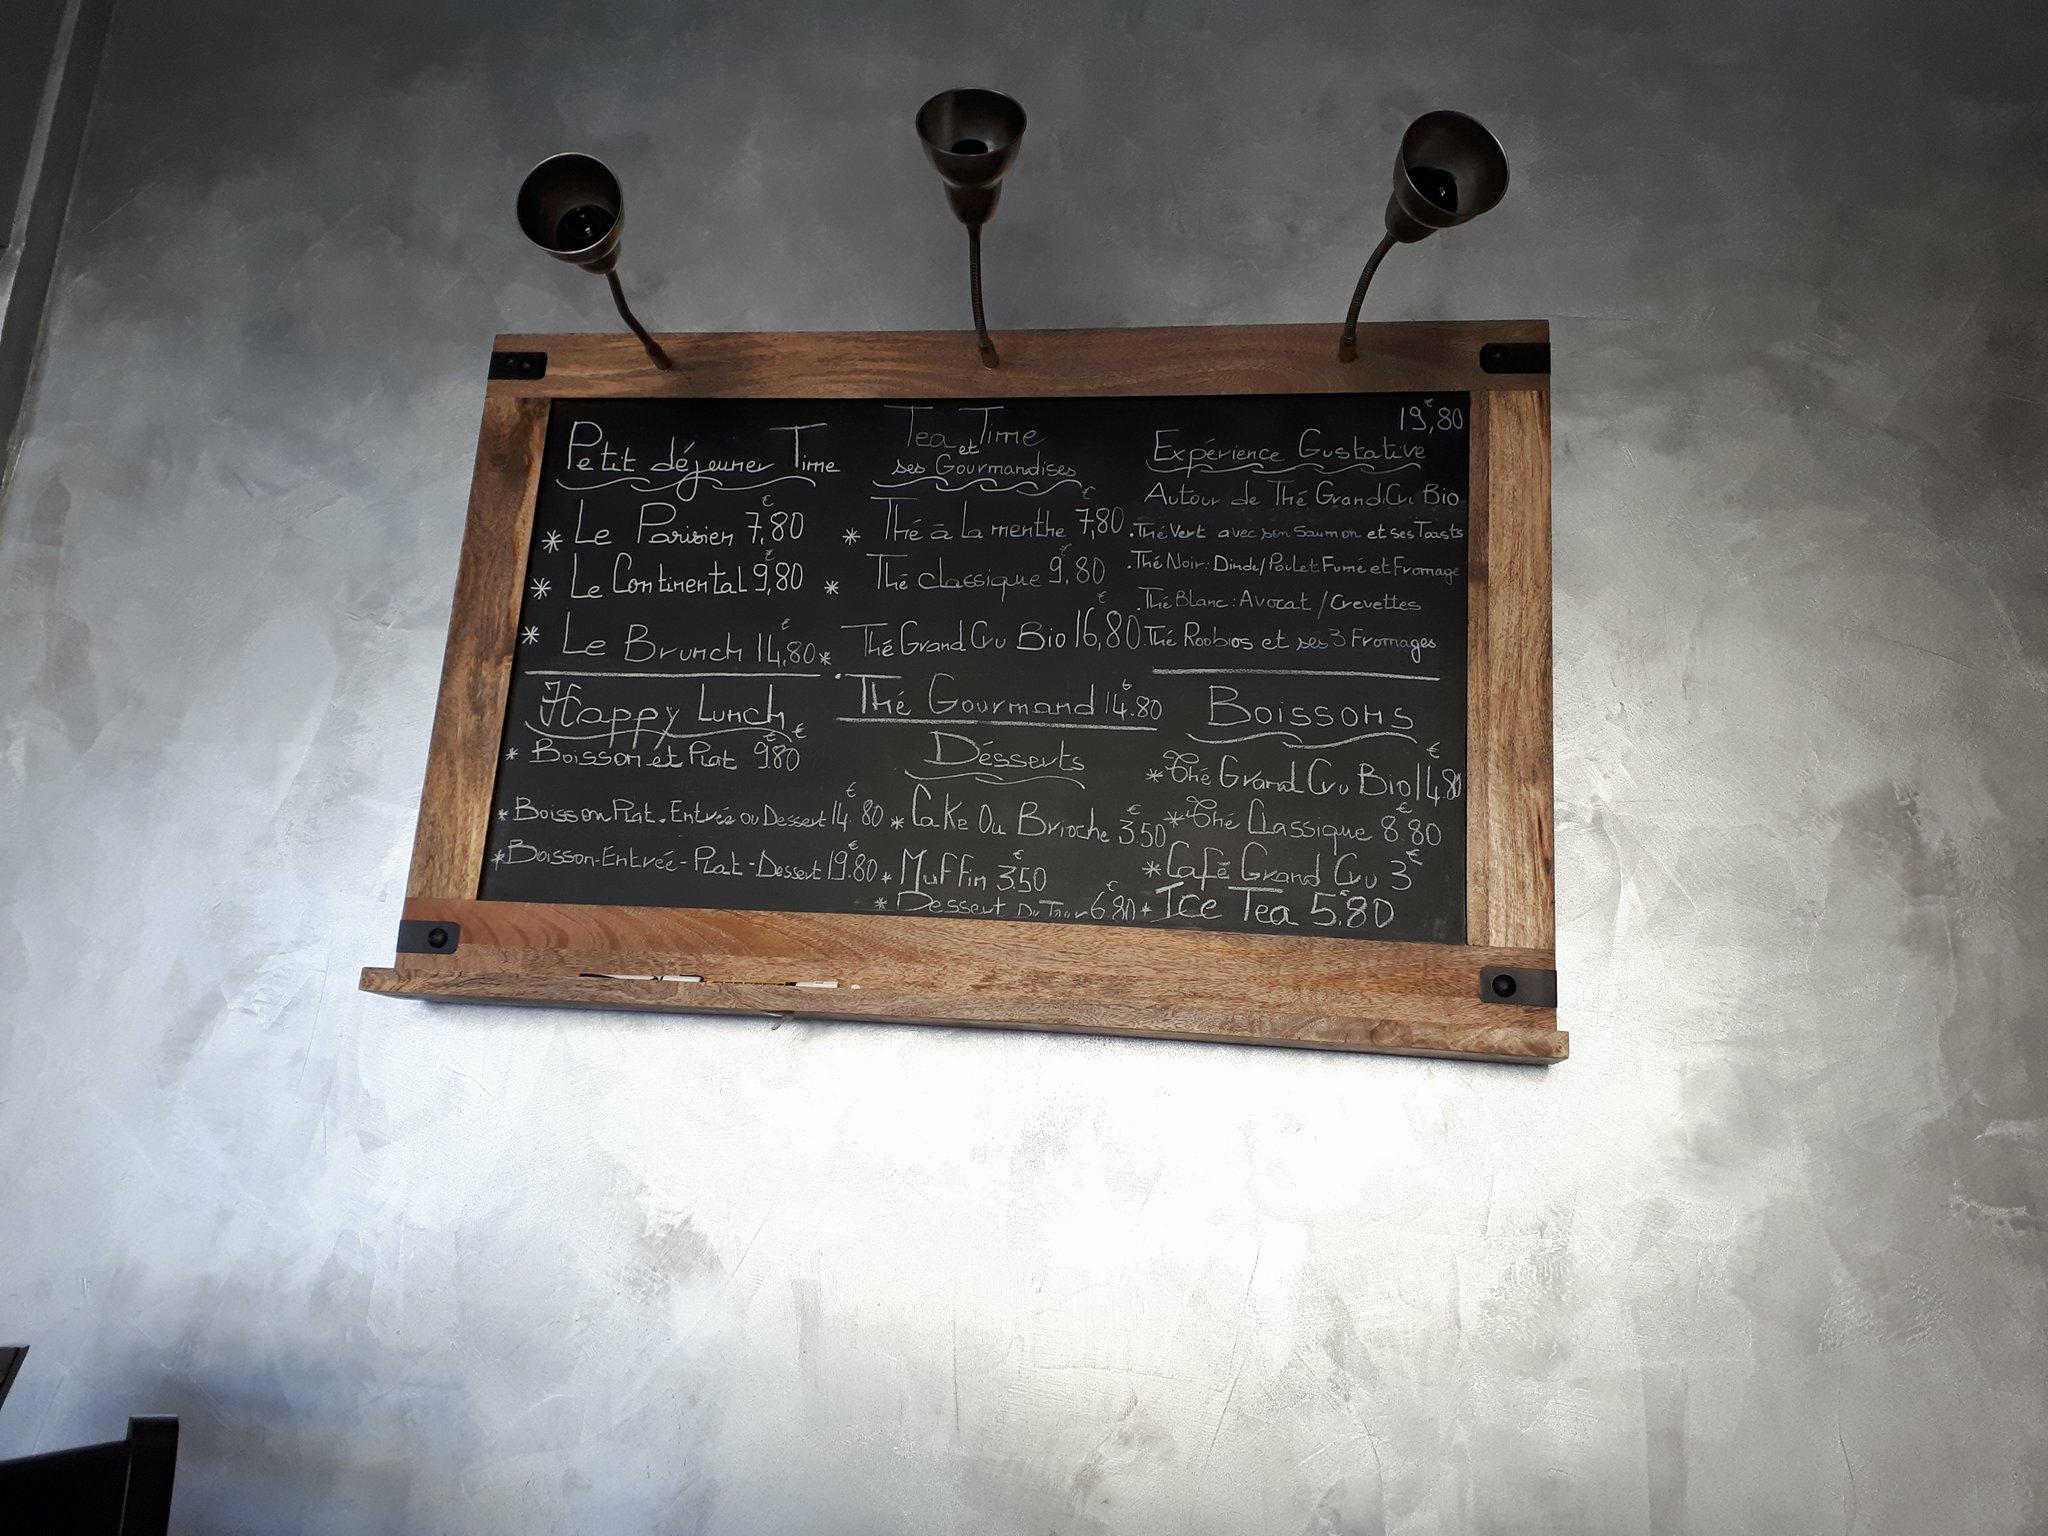 Petit déjeuner Time
* Le Parisien 7,80 €
* Le Continental 9,80 €
* Le Brunch 14,80 €
Happy Lunch
* Boisson et Plat 9,80 €
* Boisson Plat. Entrée ou Dessert 14.80 €
* Boisson-Entrée-Plat-Dessert 19.80 €
Tea Time
et
ses Gourmandises
* Thé à La menthe 7,80 €
* Thé classique 9,80 €
* Thé Grand Cru Bio 16,80 €
. Thé Gourmand 14.80 €
Désserts
* Cake Ou Brioche 3.50 €
* Muffin 3.50 €
* Dessert Du Jour 6.80 €
19,80 €
Expérience Gustative
Autour de Thé Grand Cru Bio
. Thé Vert avec son Saumon et ses Toasts
. Thé Noir: Dinde/Poulet Fumé et Fromage
. Thé Blanc: Avocat / Crevettes
. Thé Roobios et ses 3 Fromages
Boissons
* Thé Grand Cru Bio 14.80 €
* Thé Classique 8.80 €
* Café Grand Cru 3 €
* Ice Tea 5.80 €